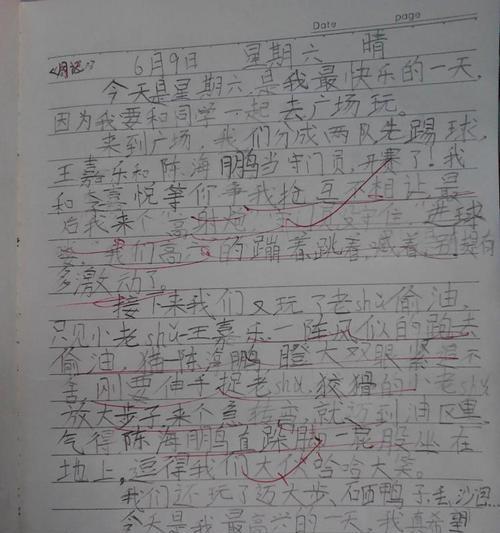 Date page
《周记》 6月9日 星期六 晴
今天是星期六,是我最快乐的一天,
因为我要和同学一起去广场玩。
来到广场,我们分成两队先踢球,
王嘉乐和陈海鹏当守门员,开赛了!我
和 悦等你争我抢互不相让最
后我来个高射炮 进球
我们高兴的蹦着跳着,喊着,别提有
多激动了。
接下来我们又玩了老shǔ偷油,
只见小老shǔ王嘉乐一阵风似的跑去
偷油,猫陈海鹏,瞪大双眼紧追不
舍,刚要伸手捉老shǔ,狡猾的小老shǔ
放大步子来个急转弯,就 到油 里,
气得陈海鹏直跺脚一屁股坐在
地上,逗得我们大伙哈哈大笑。
我们还玩了迈大步、砸鸭子、丢沙包…
今天是我最高兴的一天,我真希望